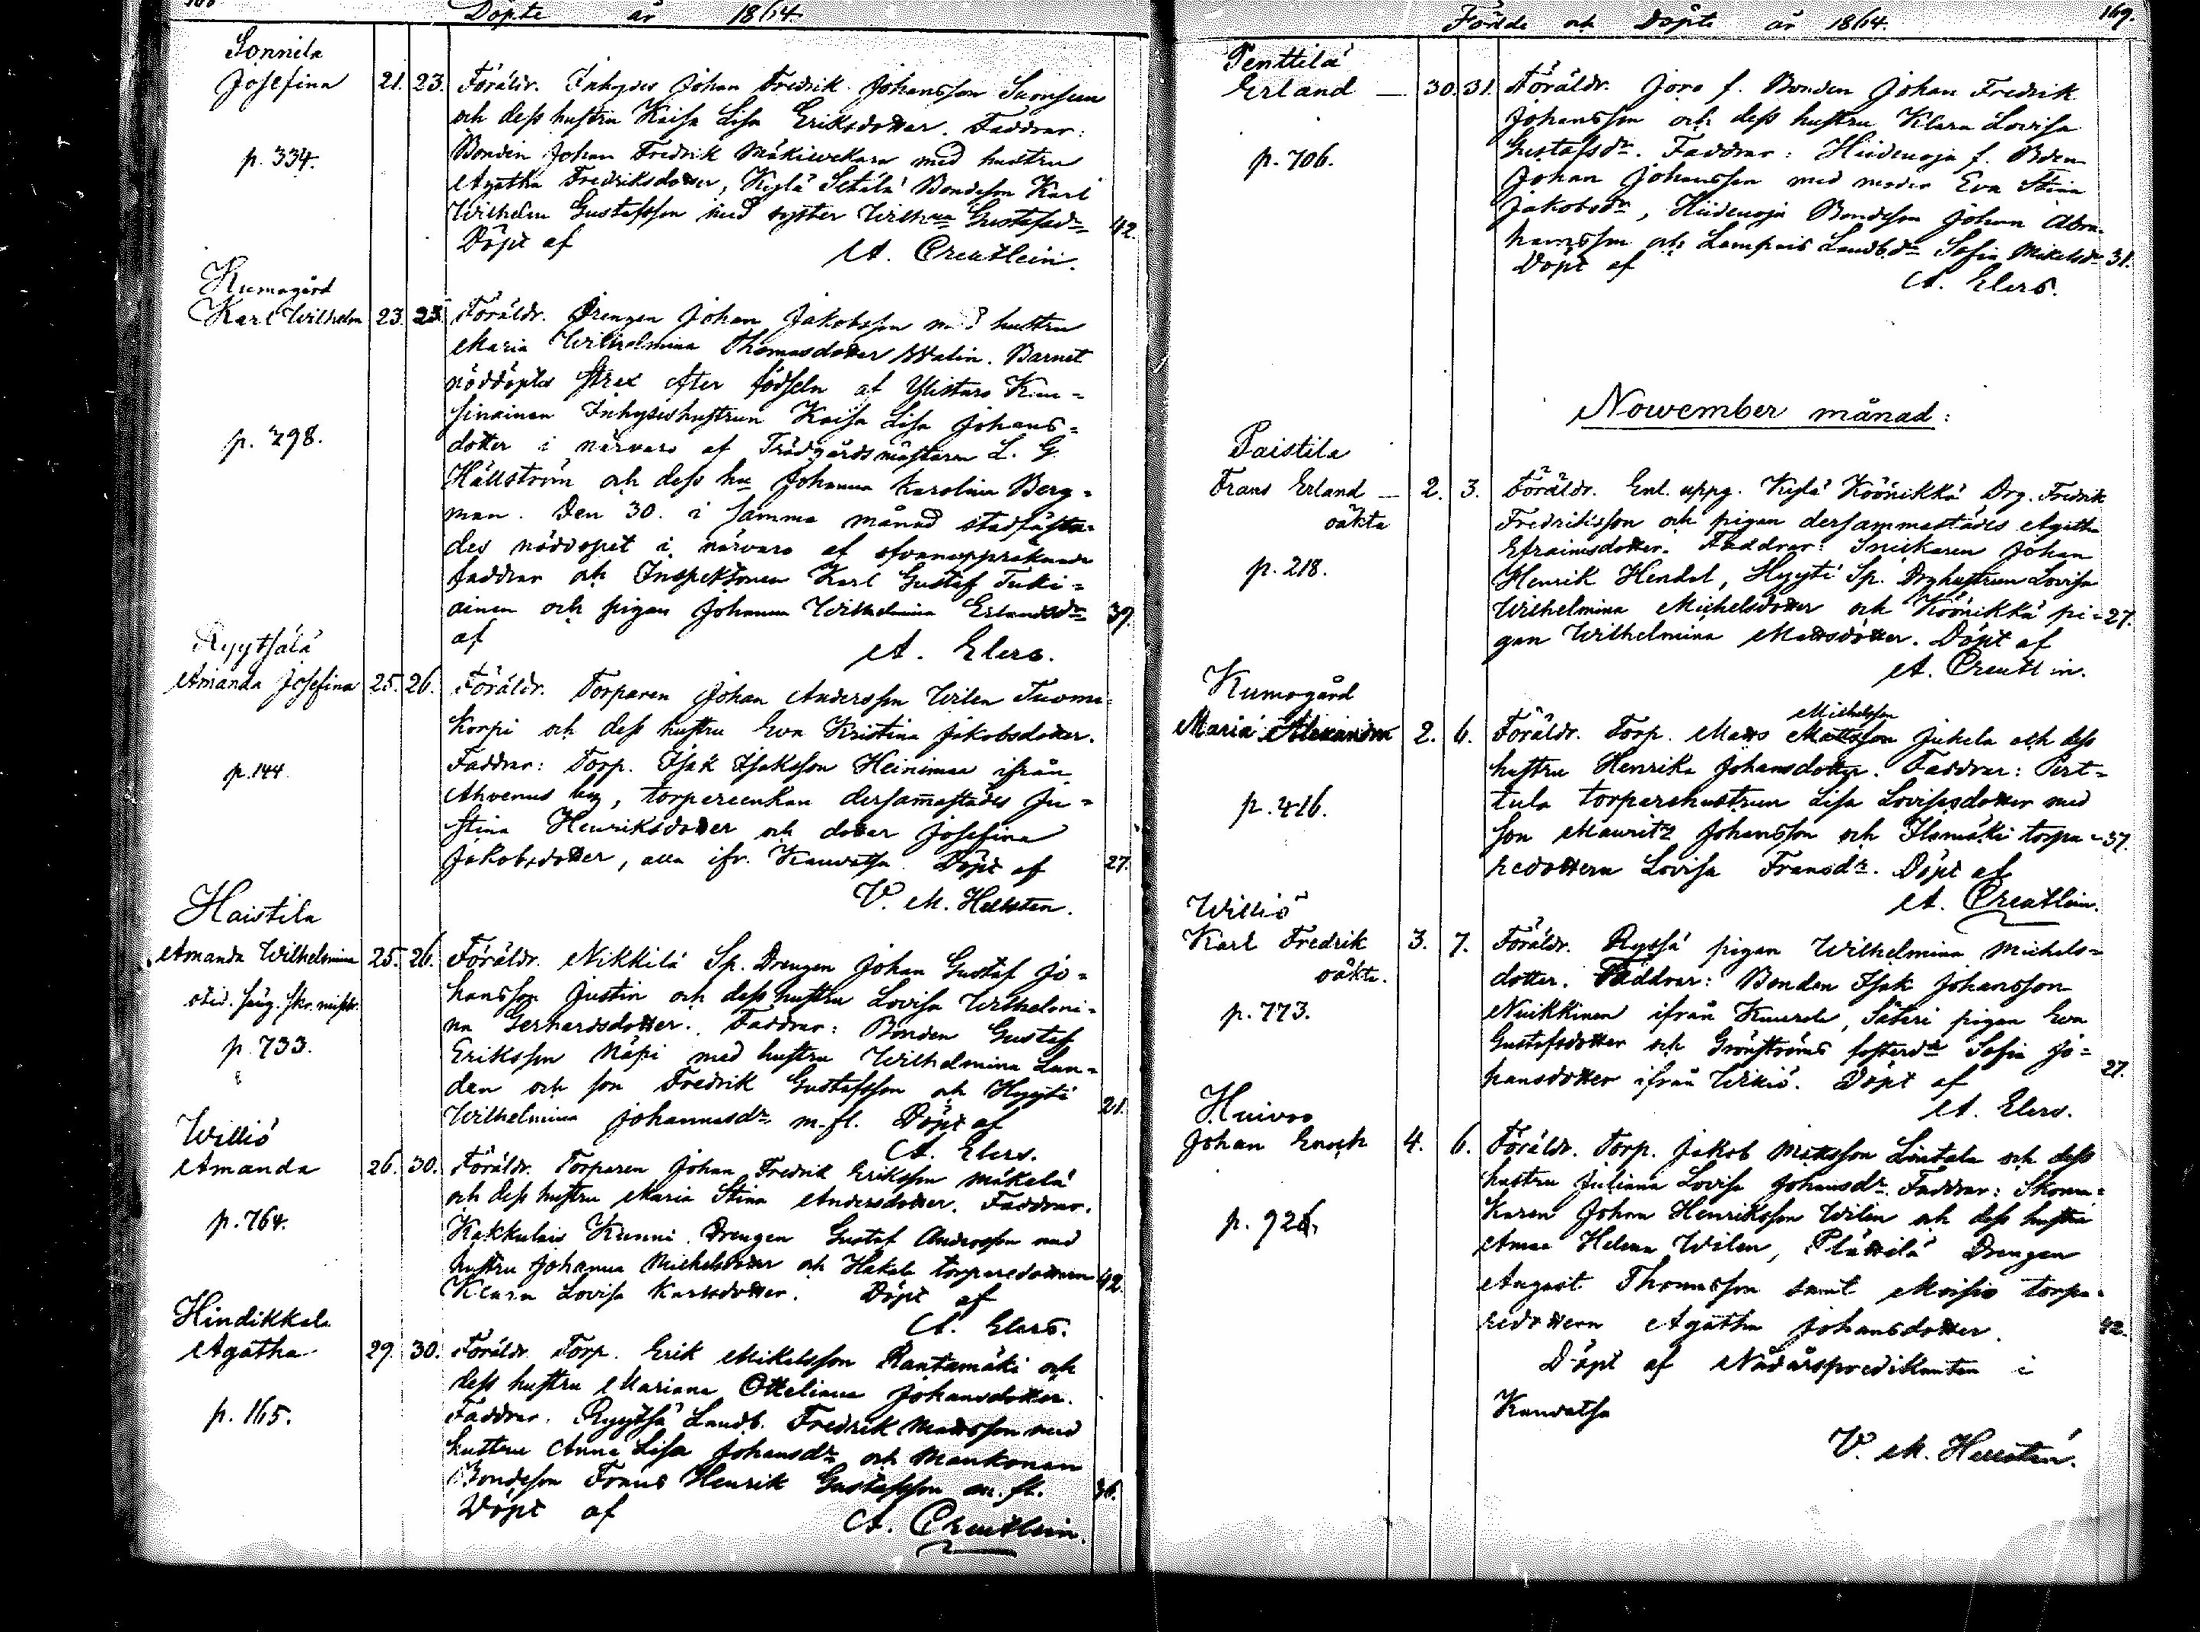 168
Döpte år 1864.
Sonnila
Josefina 21. 23. Föräldr. Inhyses Johan Fredrik Johansson Suonsuu
och dess hustru Kaisa Lisa Eriksdotter. Faddrar:
p. 334. Bonden Johan Fredrik Mäkiwekara med hustru
Agatha Fredriksdotter, Kylä Setälä Bondeson Karl
Wilhelm Gustafsson med syster Wilhna Gustafsdr 42.
Döpt af A. Creutlein.
Kumogård
Karl Wilhelm 23. 23. Föräldr. Drengen Johan Jakobsson med hustru
Maria Wilhelmina Thomasdotter Walin. Barnet
nöddöptes strax efter födseln af Ylistaro
Inhyseshustrun Kaisa Lisa Johans=
p. 298. dotter i närvaro af Trädgårdsmästaren L. G.
Hällström och dess hu Johanna Karolina Berg=
man. Den 30. i samma månad stadfästa=
des nöddopet i närvaro af ofvanuppräknade
faddrar och Inspektoren Karl Gustaf Tuki=
ainen och pigan Johanna Wilhelmina Erlandsdr 39.
af A. Elers.
Ryytsälä
Amanda Josefina 25. 26. Föräldr. Torparen Johan Andersson Wilen Tuomi
korpi och dess hustru Eva Kristina Jakobsdotter.
p. 144. Faddrar: Torp. Isak Isaksson Heinimaa ifrån
Ahvenus by, torpareenkan dersammastädes Ju=
stina Henriksdotter och dotter Josefina
Jakobsdotter, alla ifr. Kauvatsa. Döpt af 27.
V. M. Hellsten.
Haistila
Amanda Wilhelmina 25. 26. Föräldr. Nikkilä Sp. Drengen Johan Gustaf Jo=
hansson Justin och dess hustru Lovisa Wilhelmi=
na Gerhardsdotter. Faddrar: Bonden Gustaf
p. 733. Eriksson Näpi med hustru Wilhelmina Lun=
den och son Fredrik Gustafsson och Hyyti
Wilhelmina Johannasdr m. fl. Döpt af 21.
A. Elers.
Williö
Amanda 26. 30. Föräldr. Torparen Johan Fredrik Eriksson Mäkelä
och dess hustru Maria Stina Andersdotter. Faddrar.
p. 764. Kakkulais Kunni Drengen Gustaf Andersson med
hustru Johanna Michelsdotter och Hakala torparedottern 42.
Klara Lovisa Karlsdotter. Döpt af
A. Elers.
Hindikkala
Agatha 29. 30. Föräldr. Torp. Erik Mikelsson Rantamäki och
dess hustru Mariana Otteliana Johansdotter.
p. 165. Faddrar. Ryytsä Landb. Fredrik Mattsson med
hustru Anna Lisa Johansdr och Maukonen
Bondeson Frans Henrik Gustafsson m. fl. 36.
Döpt af A. Creutlein.
Födde och Döpte år 1864. 169.
Penttilä
Erland — 30. 31. Föräldr. Jorо f. Bonden Johan Fredrik
Johansson och dess hustru Klara Lovisa
p. 706. Gustafsdr. Faddrar: Hiidenoja f. Bden
Johan Johansson med moder Eva Stina
Jakobsdr, Hiidenoja Bondeson Johan Abra-
hamsson och Lampais Landb.dr Sofia Mikelsdr 31.
Döpt af A. Elers.
Nowember månad:
Paistila
Frans Erland — 2. 3. Föräldr. Enl. uppg. Kylä Köönikkä Drg. Fredrik
oäkta Fredriksson och pigan dersammastädes Agatha
Efraimsdotter. Faddrar: Snickaren Johan
p. 218. Henrik Hendel, Hyyti Sp. Drghustrun Lovisa
Wilhelmina Michelsdotter och Köönikkä pi= 27.
gan Wilhelmina Mattsdotter. Döpt af
A. Creutlin.
Kumogård
Michelsson
Maria Alexandra 2. 6. Föräldr. Torp. Matts Mattsson Jukela och dess
hustru Henrika Johansdotter. Faddrar: Pert=
p. 416. tula torparehustrun Lisa Lovisasdotter med
son Mauritz Johansson och Ilamäki torpa= 37.
redottern Lovisa Fransdr. Döpt af
A. Creutlein.
Williö
Karl Fredrik 3. 7. Föräldr. Ryssä pigan Wilhelmina Michels=
oäkta. dotter. Faddrar: Bonden Isak Johansson
p. 773. Nuikkinen ifrån Kuurola, Säteri pigan Eva
Gustafsdotter och Grönströms fosterdr Sofia Jo=
hansdotter ifrån Wikiö. Döpt af 27.
A. Elers.
Huivoo
Johan Enoch 4. 6. Föräldr. Torp. Jakob Mattsson Lintala och dess
hustru Juliana Lovisa Johansdr. Faddrar: Skoma=
p. 926. karen Johan Henriksson Wilen och dess hustru
Anna Helena Wilen, Plättilä Drengen
August Thomasson samt Moisio torpa=
redottern Agatha Johansdotter. 42.
Döpt af Nådårspredikanten i
Kauvatsa
V. M. Hellstén.